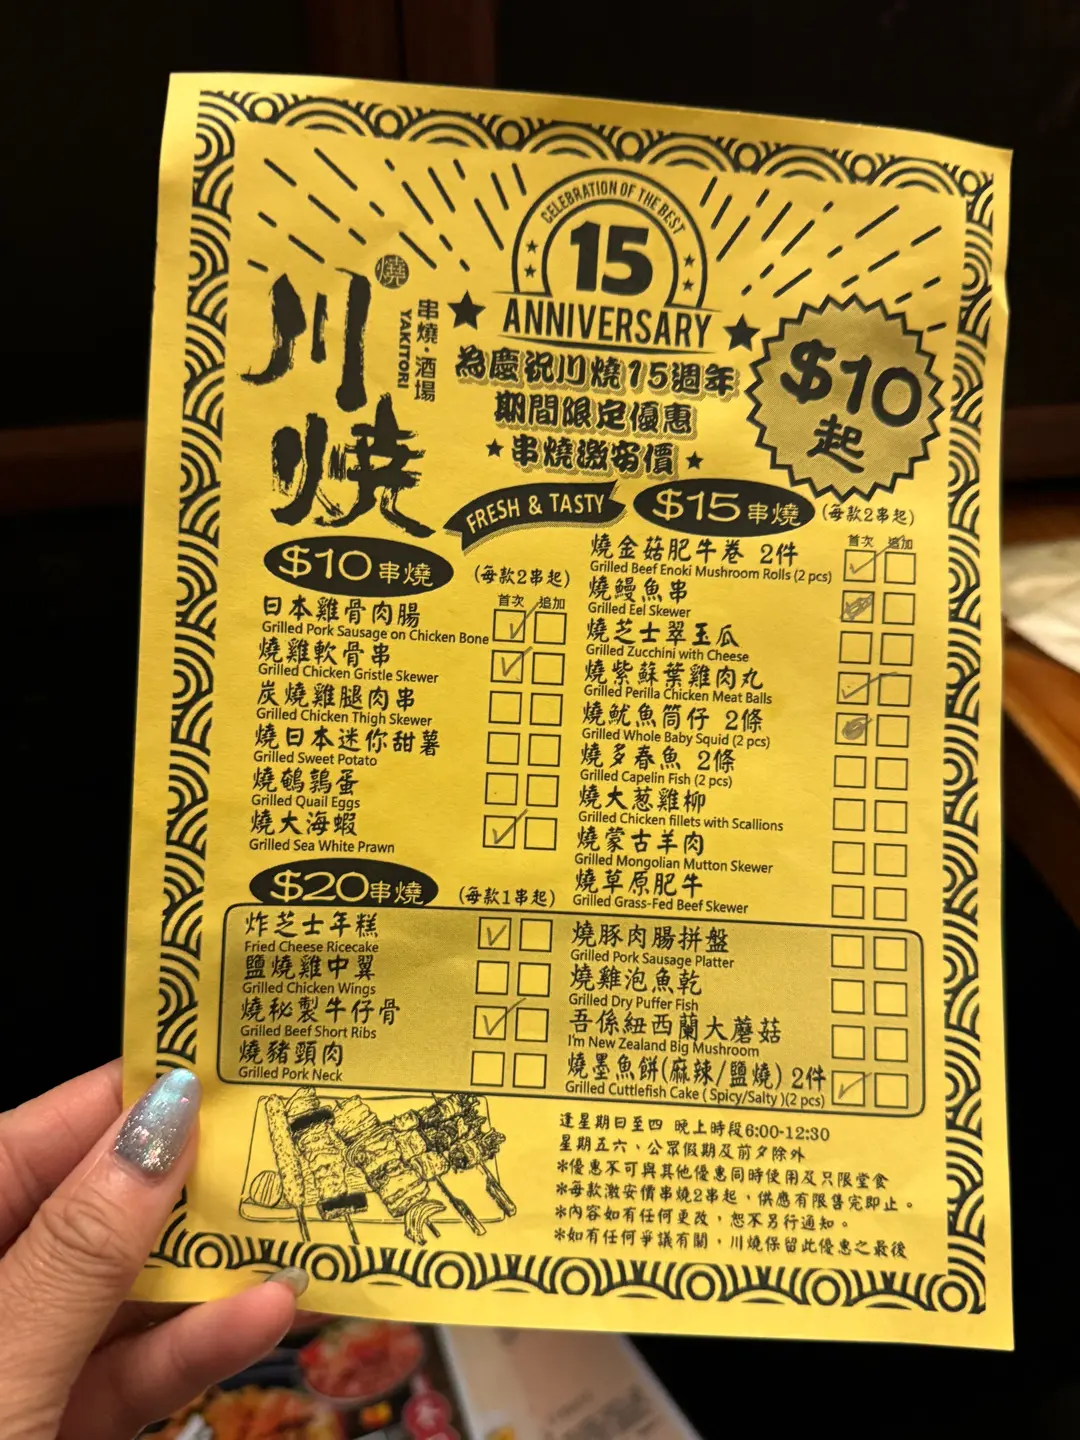 CELEBRATION OF THE BEST
15
ANNIVERSARY
川燒
燒
串燒·酒場
YAKITORI
為慶祝川燒15週年
期間限定優惠
串燒激安價
$10
起
FRESH & TASTY
$10串燒
(每款2串起)
首次 追加
日本雞骨肉腸
Grilled Pork Sausage on Chicken Bone
燒雞軟骨串
Grilled Chicken Gristle Skewer
炭燒雞腿肉串
Grilled Chicken Thigh Skewer
燒日本迷你甜薯
Grilled Sweet Potato
燒鵪鶉蛋
Grilled Quail Eggs
燒大海蝦
Grilled Sea White Prawn
$15串燒
(每款2串起)
首次 追加
燒金菇肥牛卷 2件
Grilled Beef Enoki Mushroom Rolls (2 pcs)
燒鰻魚串
Grilled Eel Skewer
燒芝士翠玉瓜
Grilled Zucchini with Cheese
燒紫蘇葉雞肉丸
Grilled Perilla Chicken Meat Balls
燒魷魚筒仔 2條
Grilled Whole Baby Squid (2 pcs)
燒多春魚 2條
Grilled Capelin Fish (2 pcs)
燒大葱雞柳
Grilled Chicken fillets with Scallions
燒蒙古羊肉
Grilled Mongolian Mutton Skewer
燒草原肥牛
Grilled Grass-Fed Beef Skewer
$20串燒
(每款1串起)
炸芝士年糕
Fried Cheese Ricecake
鹽燒雞中翼
Grilled Chicken Wings
燒秘製牛仔骨
Grilled Beef Short Ribs
燒豬頸肉
Grilled Pork Neck
燒豚肉腸拼盤
Grilled Pork Sausage Platter
燒雞泡魚乾
Grilled Dry Puffer Fish
吾係紐西蘭大蘑菇
I'm New Zealand Big Mushroom
燒墨魚餅(麻辣/鹽燒) 2件
Grilled Cuttlefish Cake ( Spicy/Salty )(2 pcs)
逢星期日至四 晚上時段6:00-12:30
星期五六、公眾假期及前夕除外
*優惠不可與其他優惠同時使用及只限堂食
*每款激安價串燒2串起，供應有限售完即止。
*內容如有任何更改，恕不另行通知。
*如有任何爭議有關，川燒保留此優惠之最後